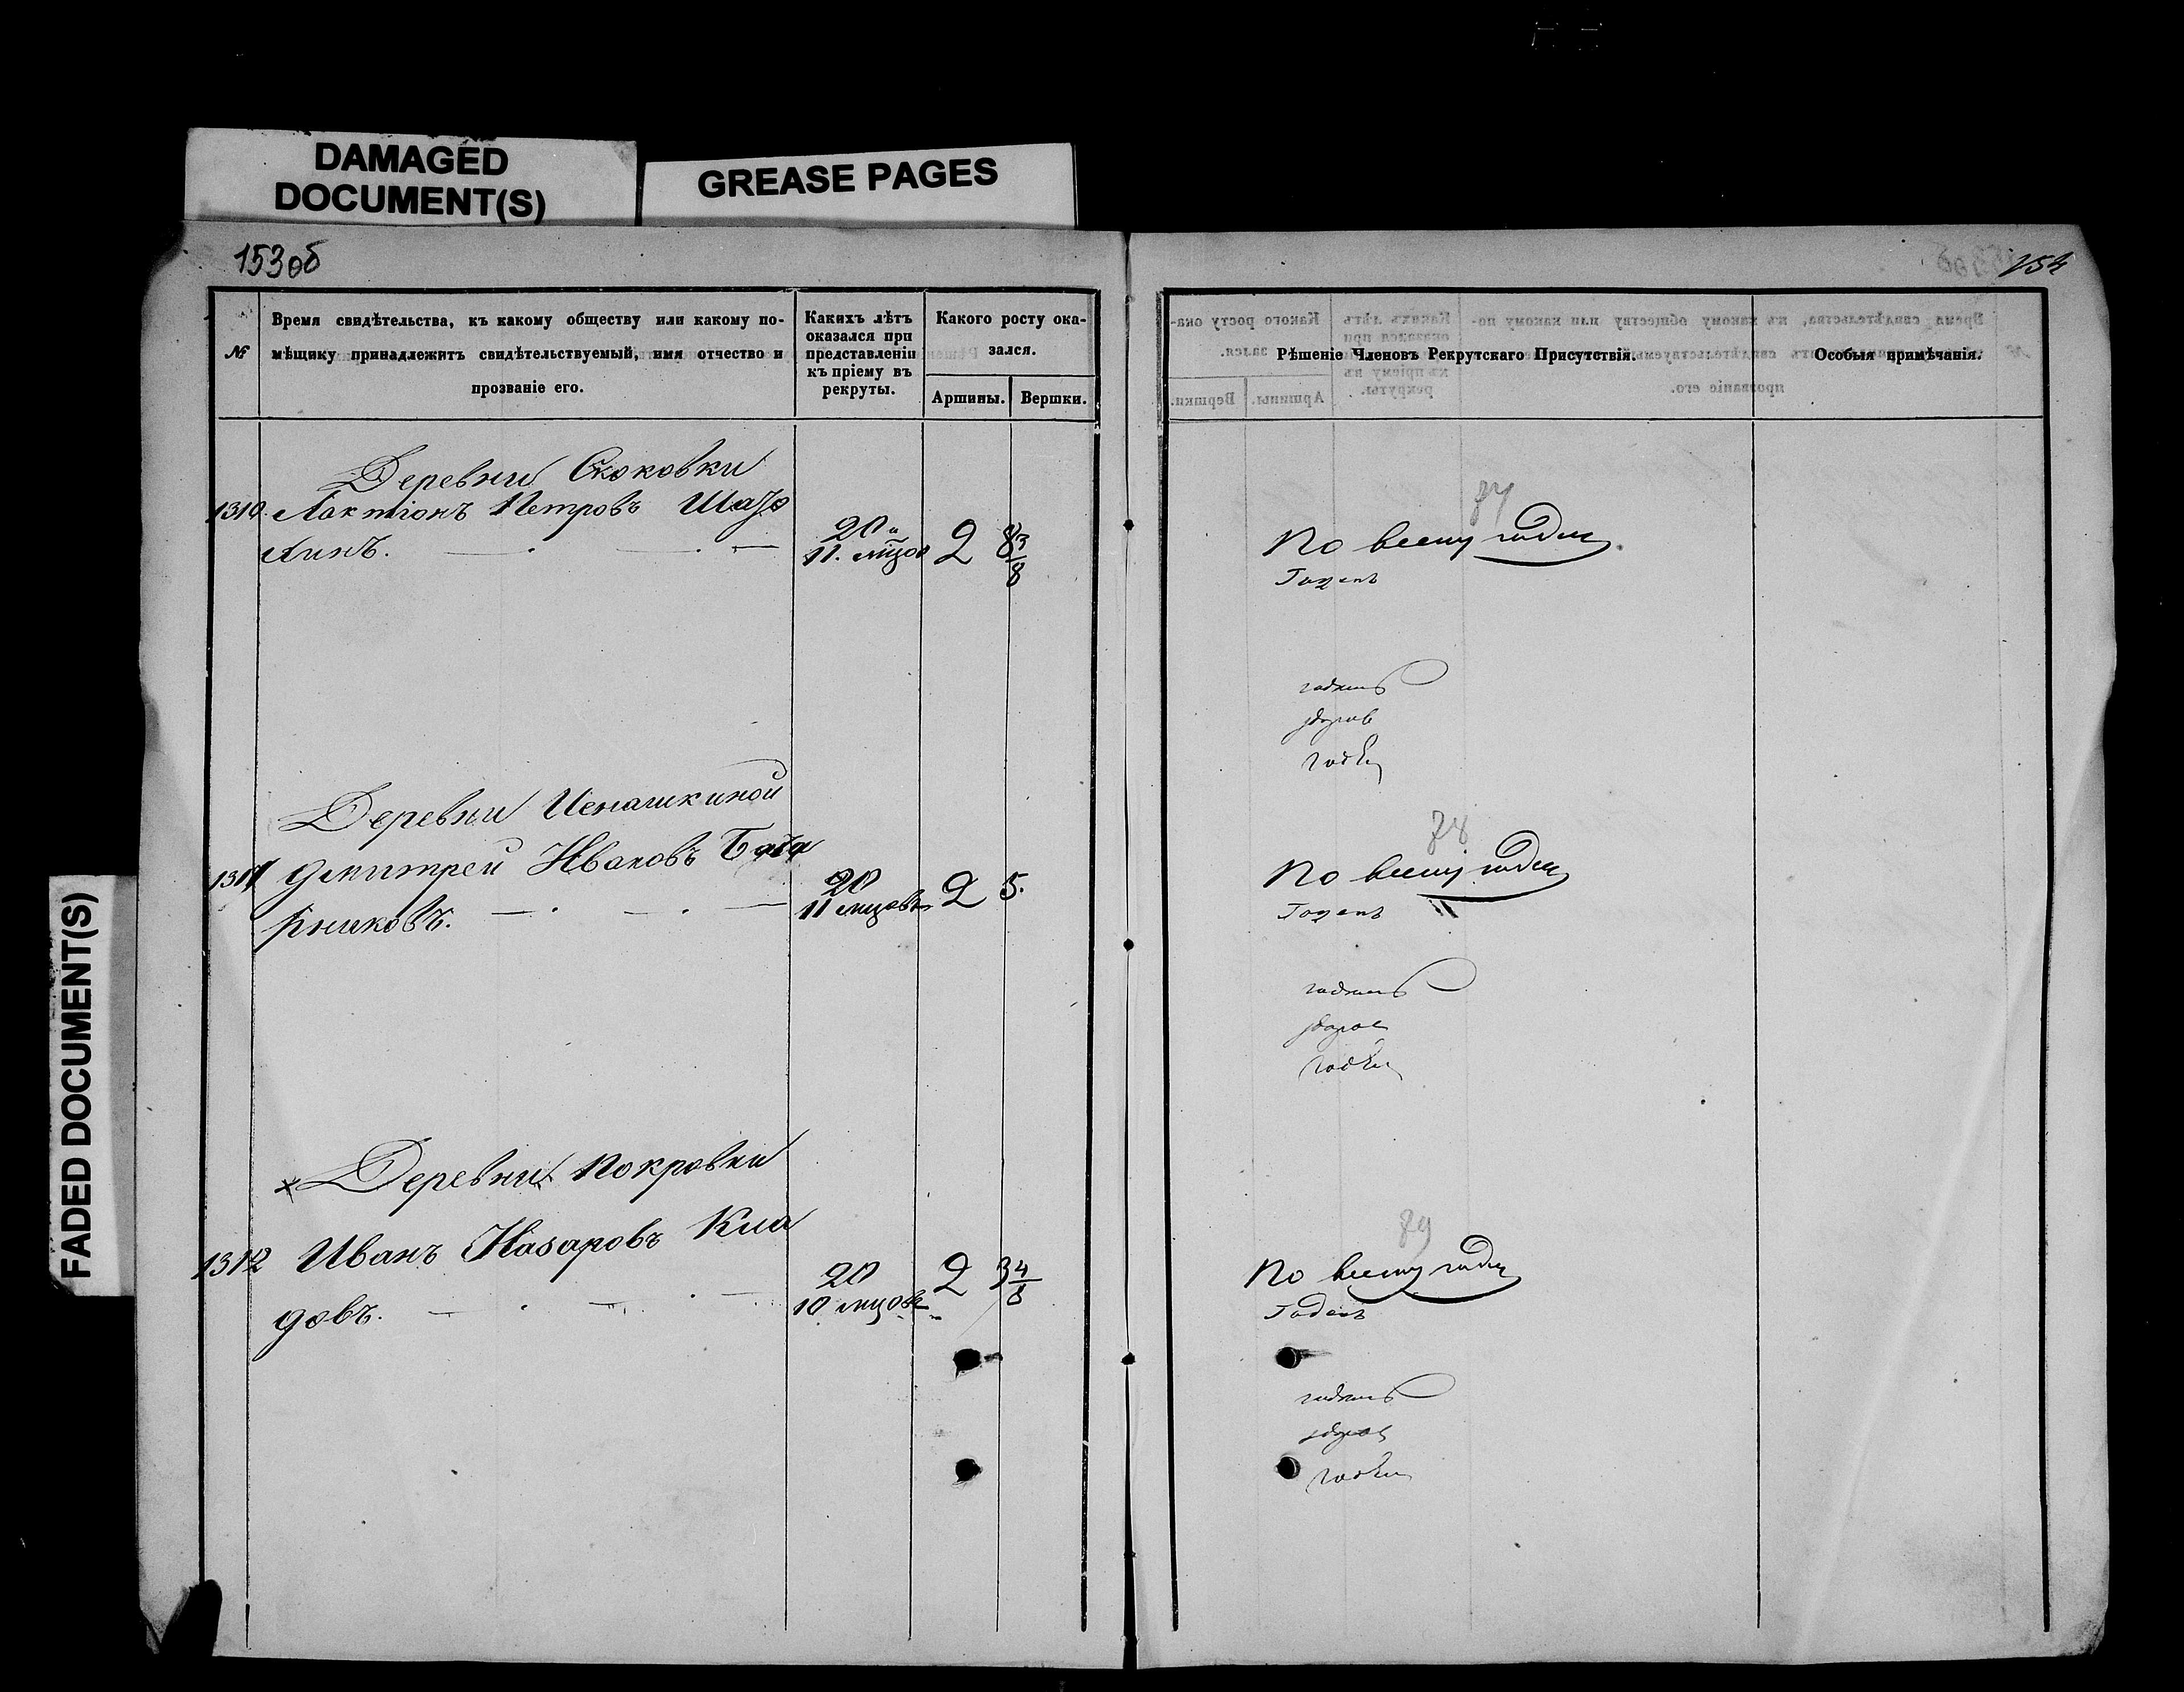 DAMAGED
DOCUMENT(S)
GREASE PAGES
FADED DOCUMENT(S)
153об
№
Время свидѣтельства, къ какому обществу или какому по-
мѣщику принадлежитъ свидѣтельствуемый, имя отчество и
прозваніе его.
Какихъ лѣтъ
оказался при
представленіи
къ пріему въ
рекруты.
Какого росту ока-
зался.
Аршины.
Вершки.
Деревни Скоковки
1310. Лактіонъ Петровъ
линъ.
20
11. мцов
2 8 3/8
Деревни
1311 Дмитрей Ивановъ Бата
рниковъ.
20
11 мцовъ
2 5.
Деревни Покровки
1312 Иванъ Назаровъ Киа
довъ.
20
10 мцовъ
2 3 4/8
154
Рѣшеніе Членовъ Рекрутскаго Присутствія.
Особыя примѣчанія.
По всему годен
Годенъ
годенъ
здоров
годен
78
По всему годен
Годенъ
годенъ
здоров
годен
79
По всему годен
Годенъ
годенъ
здоров
годен